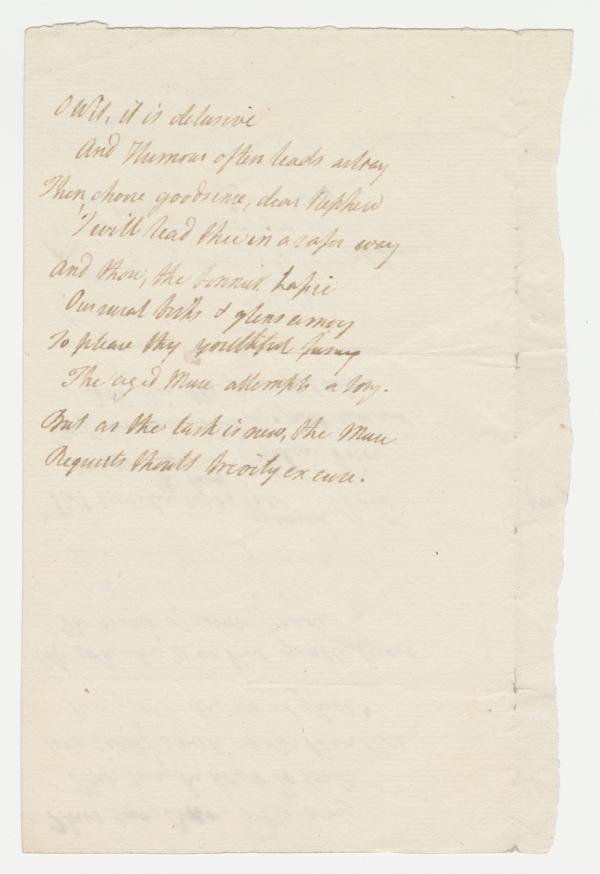 O Wit, it is delusive
And Humour often leads astray
Then chose goodsense, dear Nephew
T'will lead thee in a safer way
And thou, the bonnie Lassie
Our rural &amp; glens among
To please thy youthful fancy
The aged Muse attempts a song.
But as the task is new, the Muse
Requests thoult brevity excuse.